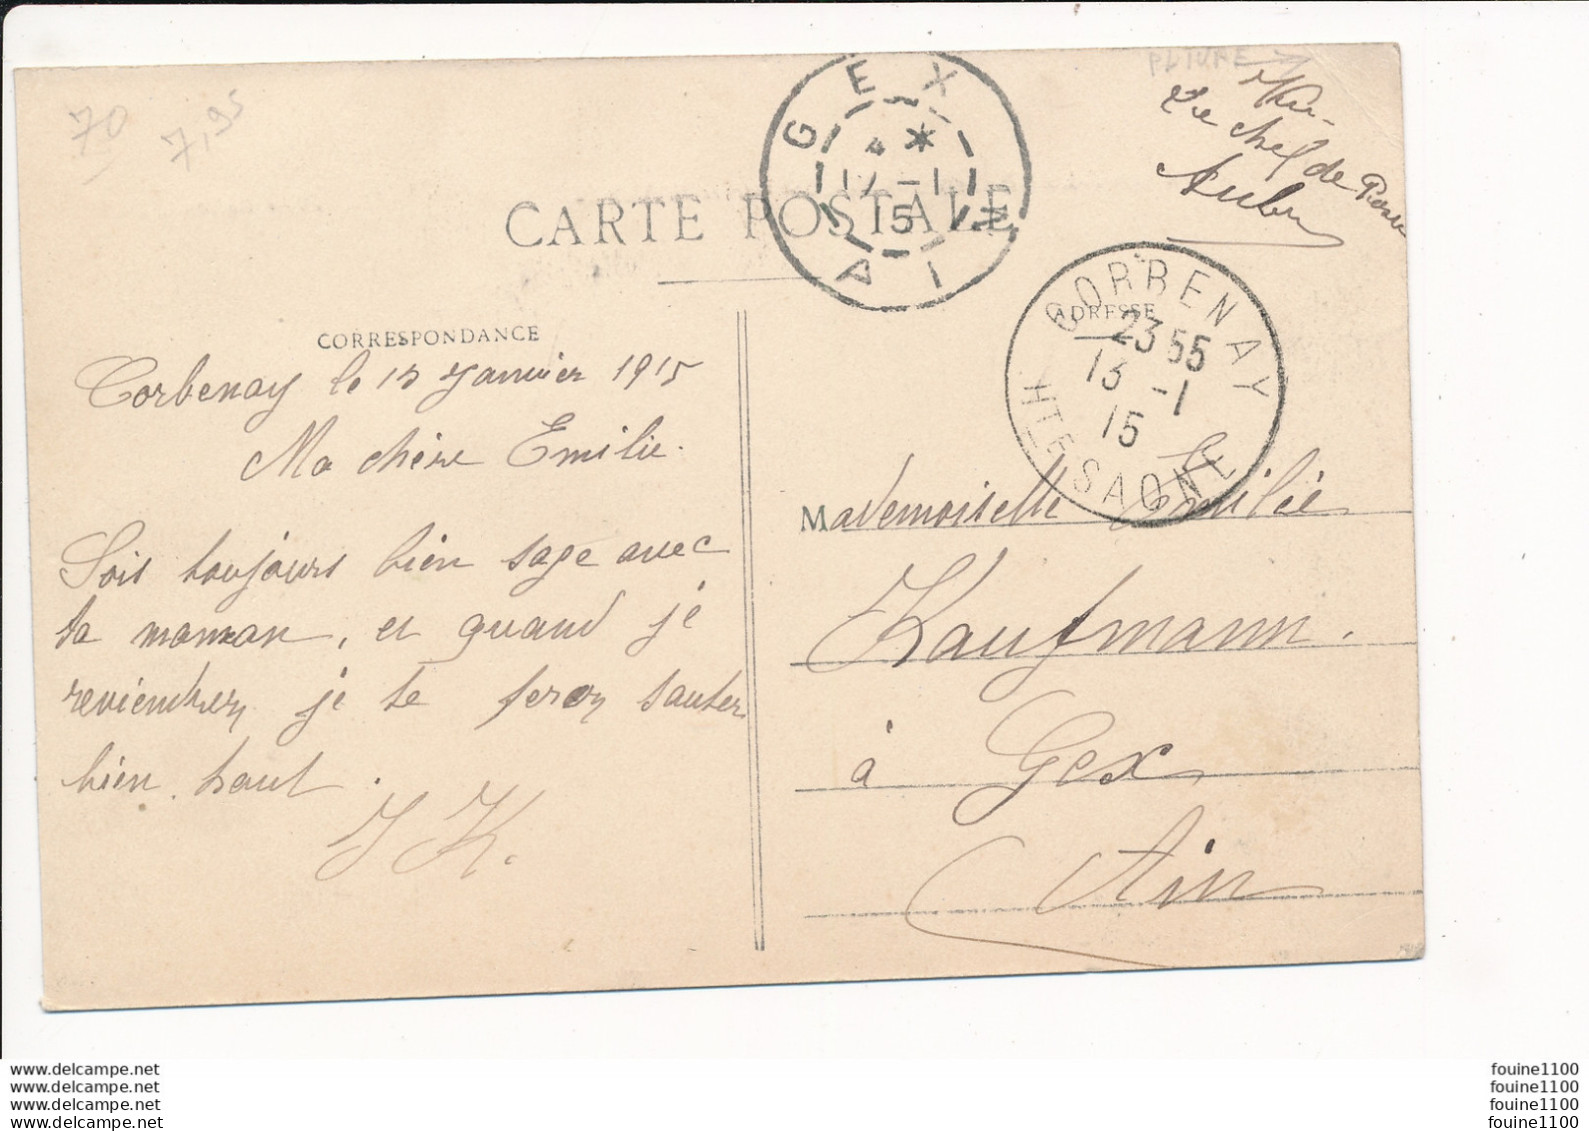 70
7,95
Vu
Le chef de
CARTE POSTALE
GEX
4 *
17 -1
15
AIN
CORBENAY
23 55
13 -1
15
HTE SAONE
CORRESPONDANCE
ADRESSE
Corbenay le 13 Janvier 1915
Ma chère Emilie.
Sois toujours bien sage avec
ta maman, et quand je
reviendrez je te feron sauter
bien haut.
J K.
Mademoiselle Emilie
Kaufmann.
à Gex
Ain
www.delcampe.net
www.delcampe.net
www.delcampe.net
www.delcampe.net
fouine1100
fouine1100
fouine1100
fouine1100